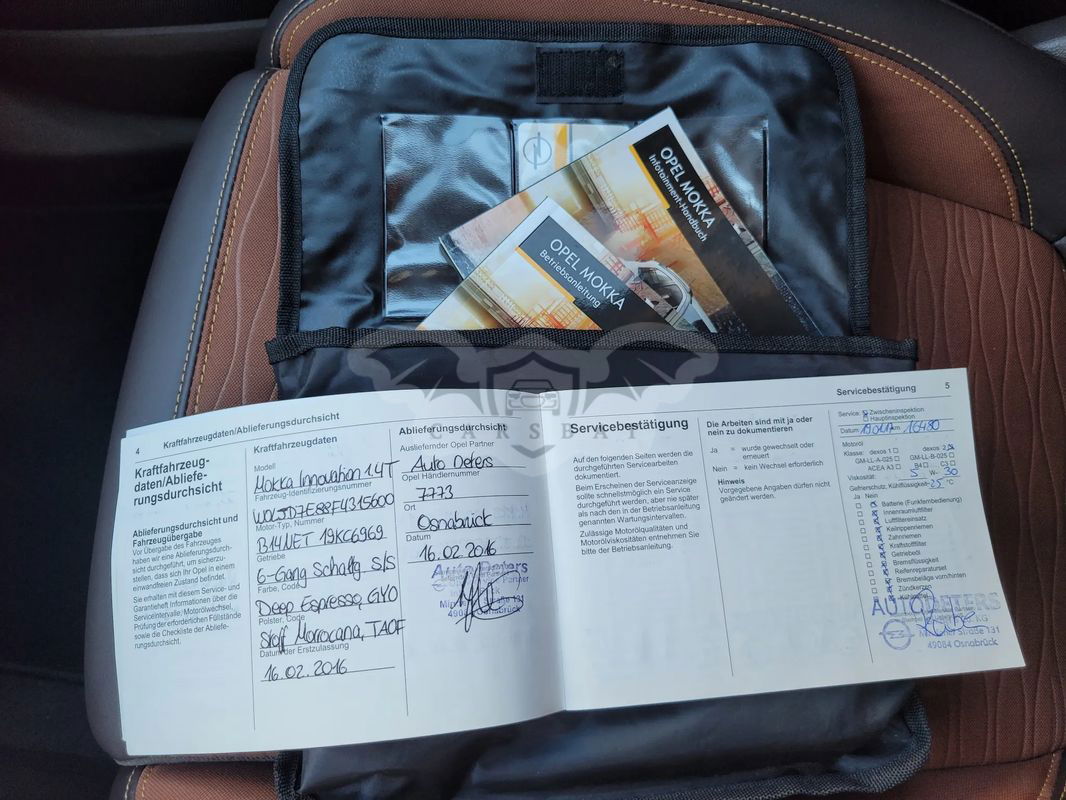 OPEL MOKKA
Infotainment-Handbuch
OPEL MOKKA
Betriebsanleitung
CARSBAT
4
Kraftfahrzeugdaten/Ablieferungsdurchsicht
Kraftfahrzeug-
daten/Abliefe-
rungsdurchsicht
Ablieferungsdurchsicht und
Fahrzeugübergabe
Vor Übergabe des Fahrzeuges
haben wir eine Ablieferungsdurch-
sicht durchgeführt, um sicherzu-
stellen, dass sich Ihr Opel in einem
einwandfreien Zustand befindet.
Sie erhalten mit diesem Service- und
Garantieheft Informationen über die
Serviceintervalle, Motorölwechsel,
Prüfung der erforderlichen Füllstände
sowie die Checkliste der Abliefe-
rungsdurchsicht.
Kraftfahrzeugdaten
Modell
Mokka Innovation 1.4T
Fahrzeug-Identifizierungsnummer
W0LJD7E88F4315600
Motor-Typ, Nummer
B14NET 19KC6969
Getriebe
6-Gang Schaltg S/S
Farbe, Code
Deep Espresso, GY0
Polster, Code
Stoff Morrocana, TAOF
Datum der Erstzulassung
16.02.2016
Ablieferungsdurchsicht
Ausliefernder Opel Partner
Auto Deters
Opel Händlernummer
7773
Ort
Osnabrück
Datum
16.02.2016
Auto Deters
49084 Osnabrück
Servicebestätigung
5
Servicebestätigung
Auf den folgenden Seiten werden die
durchgeführten Servicearbeiten
dokumentiert.
Beim Erscheinen der Serviceanzeige
sollte schnellstmöglich ein Service
durchgeführt werden, aber nie später
als nach den in der Betriebsanleitung
genannten Wartungsintervallen.
Zulässige Motorölqualitäten und
Motorölviskositäten entnehmen Sie
bitte der Betriebsanleitung.
Die Arbeiten sind mit ja oder
nein zu dokumentieren
Ja = wurde gewechselt oder
erneuert
Nein = kein Wechsel erforderlich
Hinweis
Vorgegebene Angaben dürfen nicht
geändert werden.
Service: Zwischeninspektion
Hauptinspektion
Datum 16480
Motoröl
Klasse: dexos 1 dexos 2
GM-LL-A-025 GM-LL-B-025
ACEA A3 B4 C3
Viskosität: 5 W- 30
Gefrierschutz, Kühlflüssigkeit -25 °C
Ja Nein
Batterie (Funkfernbedienung)
Innenraumluftfilter
Luftfiltereinsatz
Keilrippenriemen
Zahnriemen
Kraftstofffilter
Getriebeöl
Bremsflüssigkeit
Reifenreparaturset
Bremsbeläge vorn/hinten
Zündkerzen
AUTO DETERS
Straße 131
49084 Osnabrück